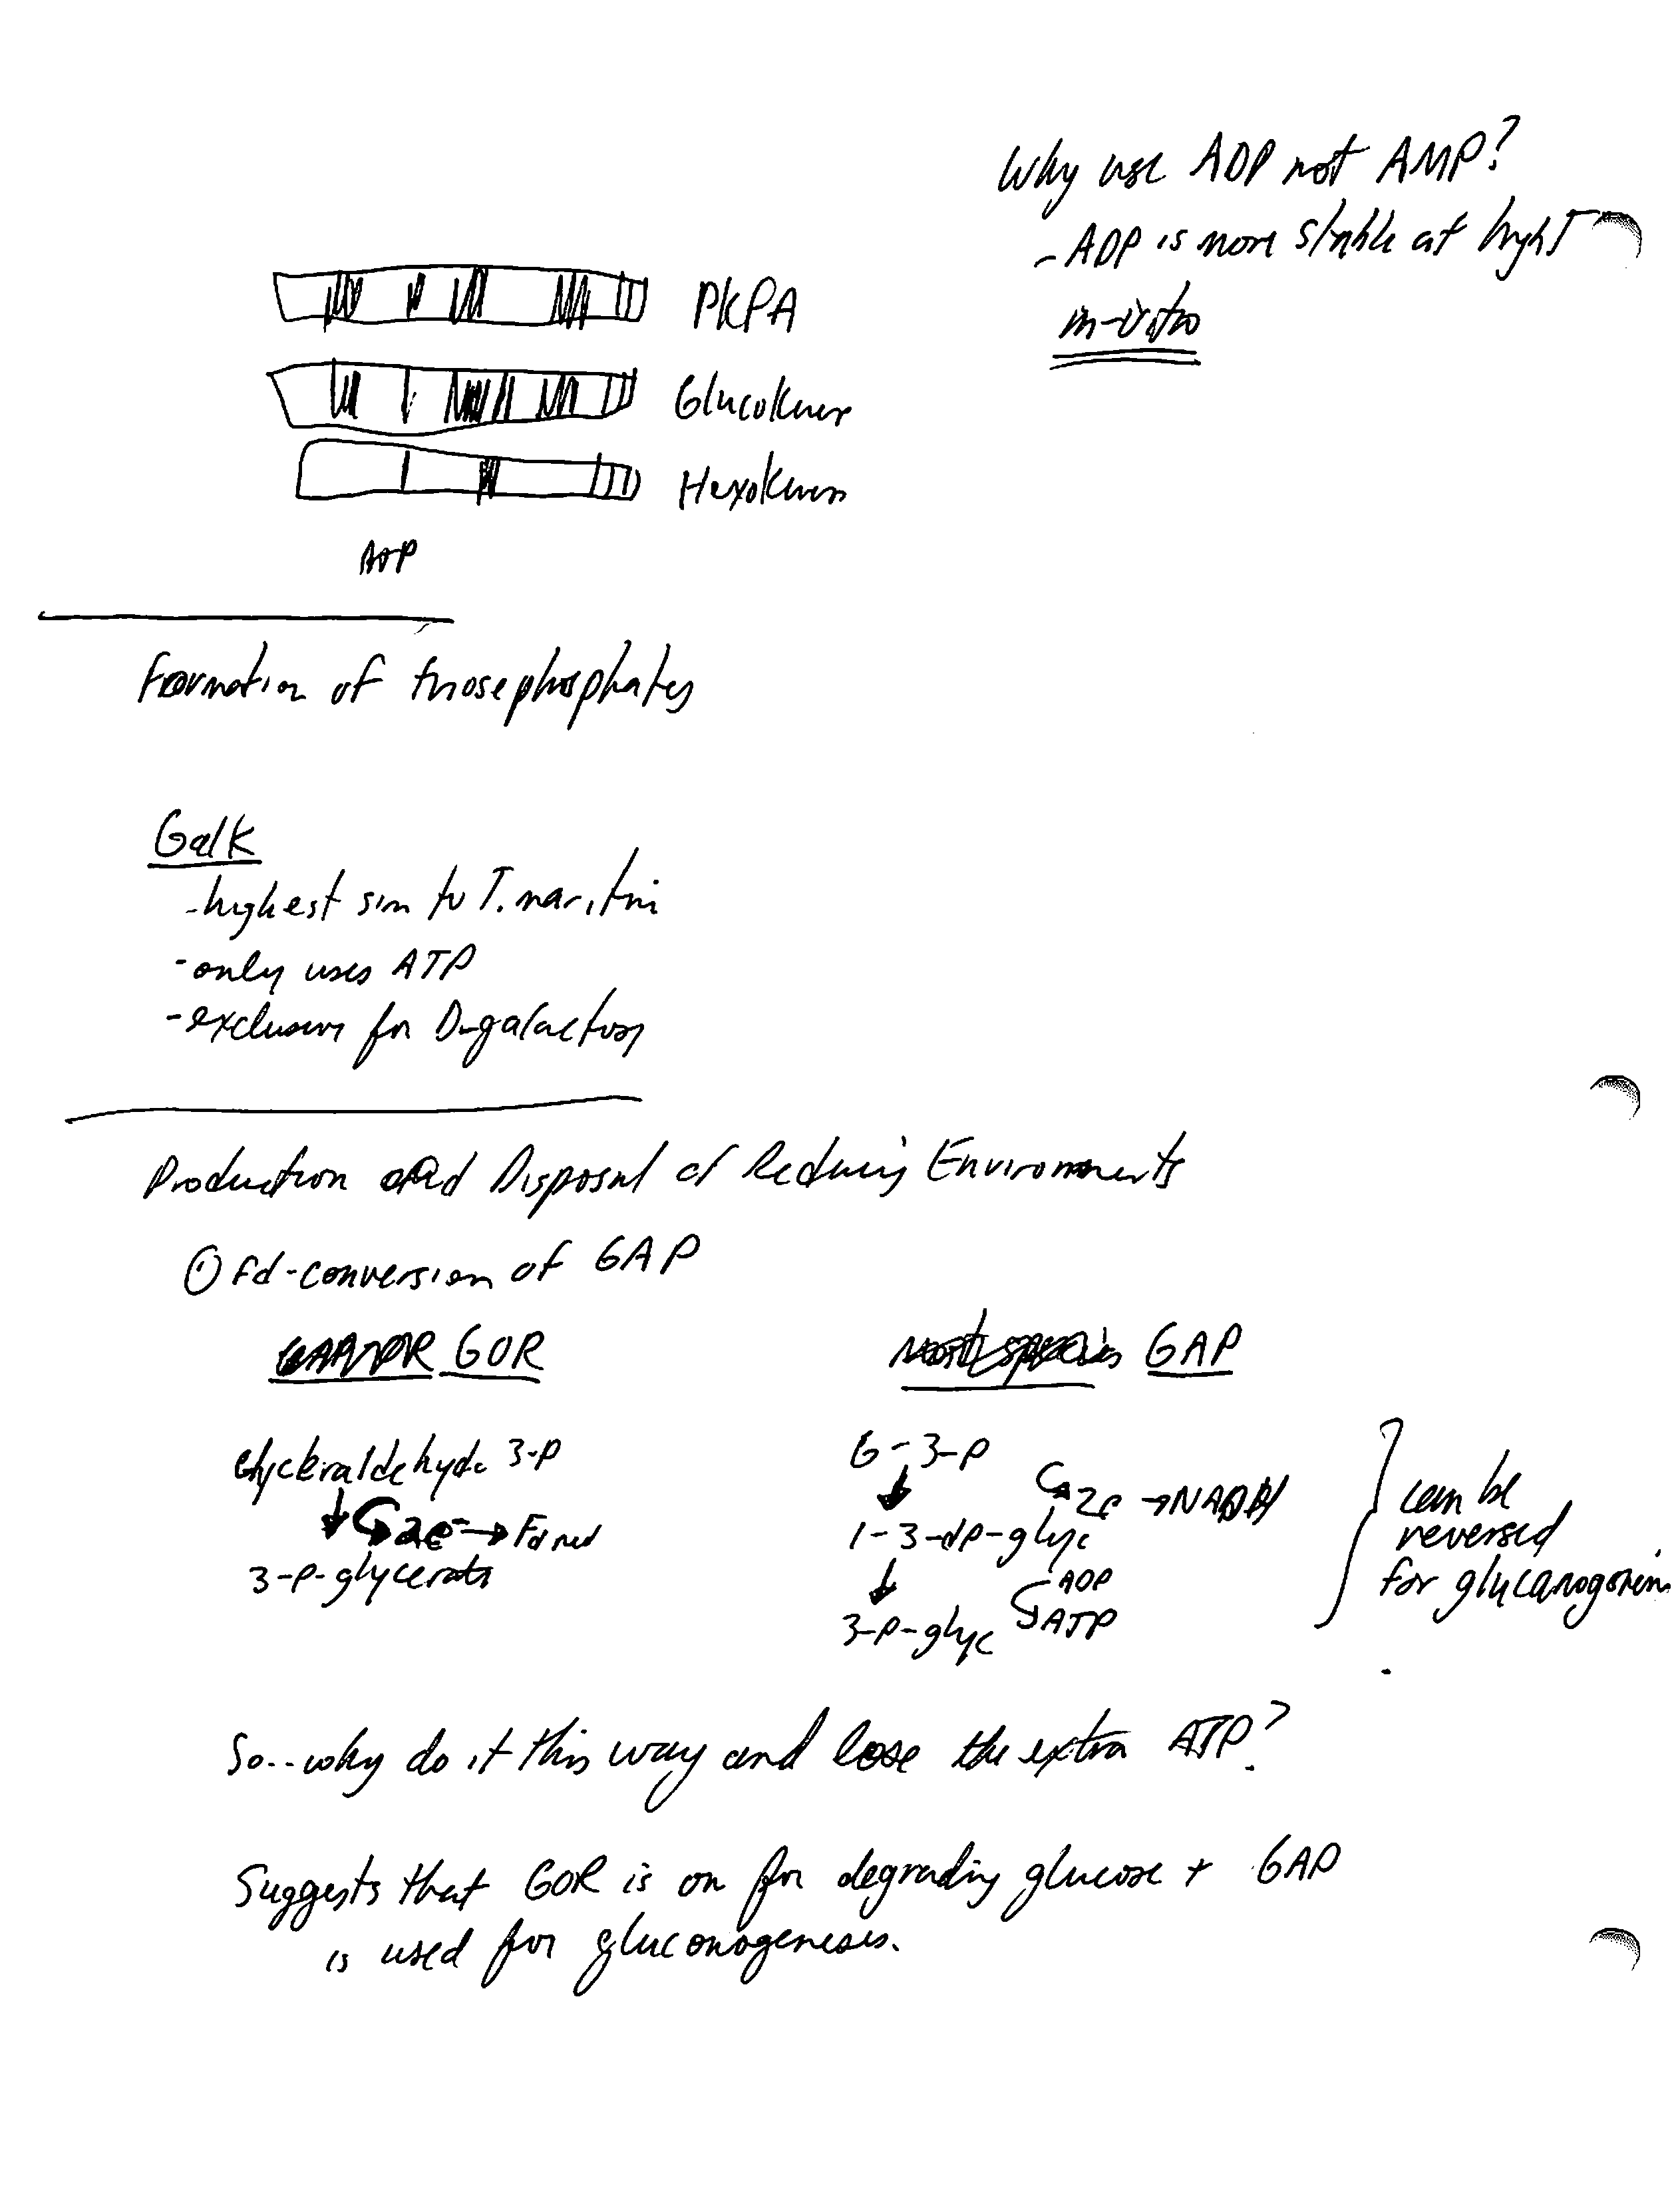 Why use ADP not AMP?
- ADP is more stable at high T
in-vitro
PKPA
Glucokinase
Hexokinase
ATP
Formation of triosephosphates
GalK
- highest sim to T. maritima
- only uses ATP
- exclusive for D-galactose
Production and Disposal of Reducing Environments
① Fd-conversion of GAP
GOR
GAP
Glyceraldehyde 3-P
2e⁻ → Fd red
3-P-glycerate
G-3-P
2e → NADPH
1-3-dP-glyc
ADP
ATP
3-P-glyc
can be
reversed
for gluconeogenesis
So.. why do it this way and lose the extra ATP?
Suggests that GOR is on for degrading glucose + GAP
is used for gluconogenesis.